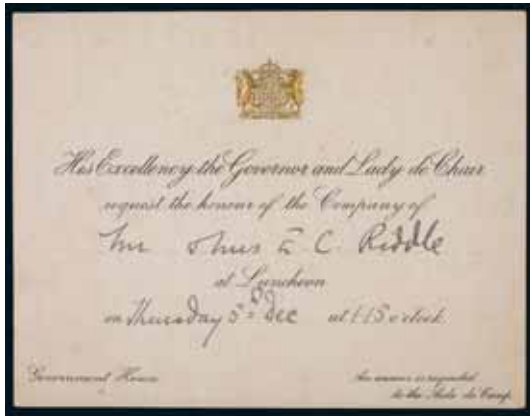 His Excellency the Governor and Lady de Chair
request the honour of the Company of
Mr E C. Riddle
at Luncheon
on Thursday 5th Dec at 1.15 o'clock
Government House
An answer is requested
to the Aide de Camp.